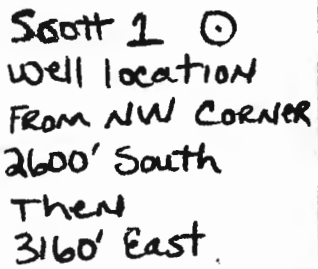 Scott 1 ⊙
well location
FROM NW CORNER
2600' South
Then
3160' East.